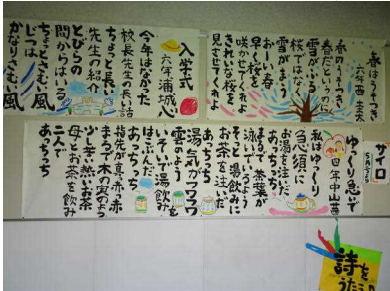 春はうそつき
六年 西 圭太
春のうそつき
春だというのに
雪がふる
桜ではなく
雪がまう
おーい春
早く桜を
咲かせてくれよ
きれいな桜を
見せてくれよ
入学式
六年 浦 城心
今年はなかった
校長先生の長い話
ちょっと長い
先生の紹介
とびらの
間からはいる
ちょっとさむい風
じつは
かなりさむい風
サイロ
ゆっくり急いで
四年 中山葵
私はゆっくり
お湯を注いだ
急須に
あっちっち
まるで茶葉が
泳いでいるよう
そっと湯飲みに
お茶を注いだ
あっちっち
湯気がフワフワ
雲のよう
いそいで湯飲みを
はこんだ
あっちっち
指先が真っ赤っ赤
まるで木の実のよう
少し苦い熱いお茶
母とお茶を飲み
二人で
あっちっち
詩を
うたう